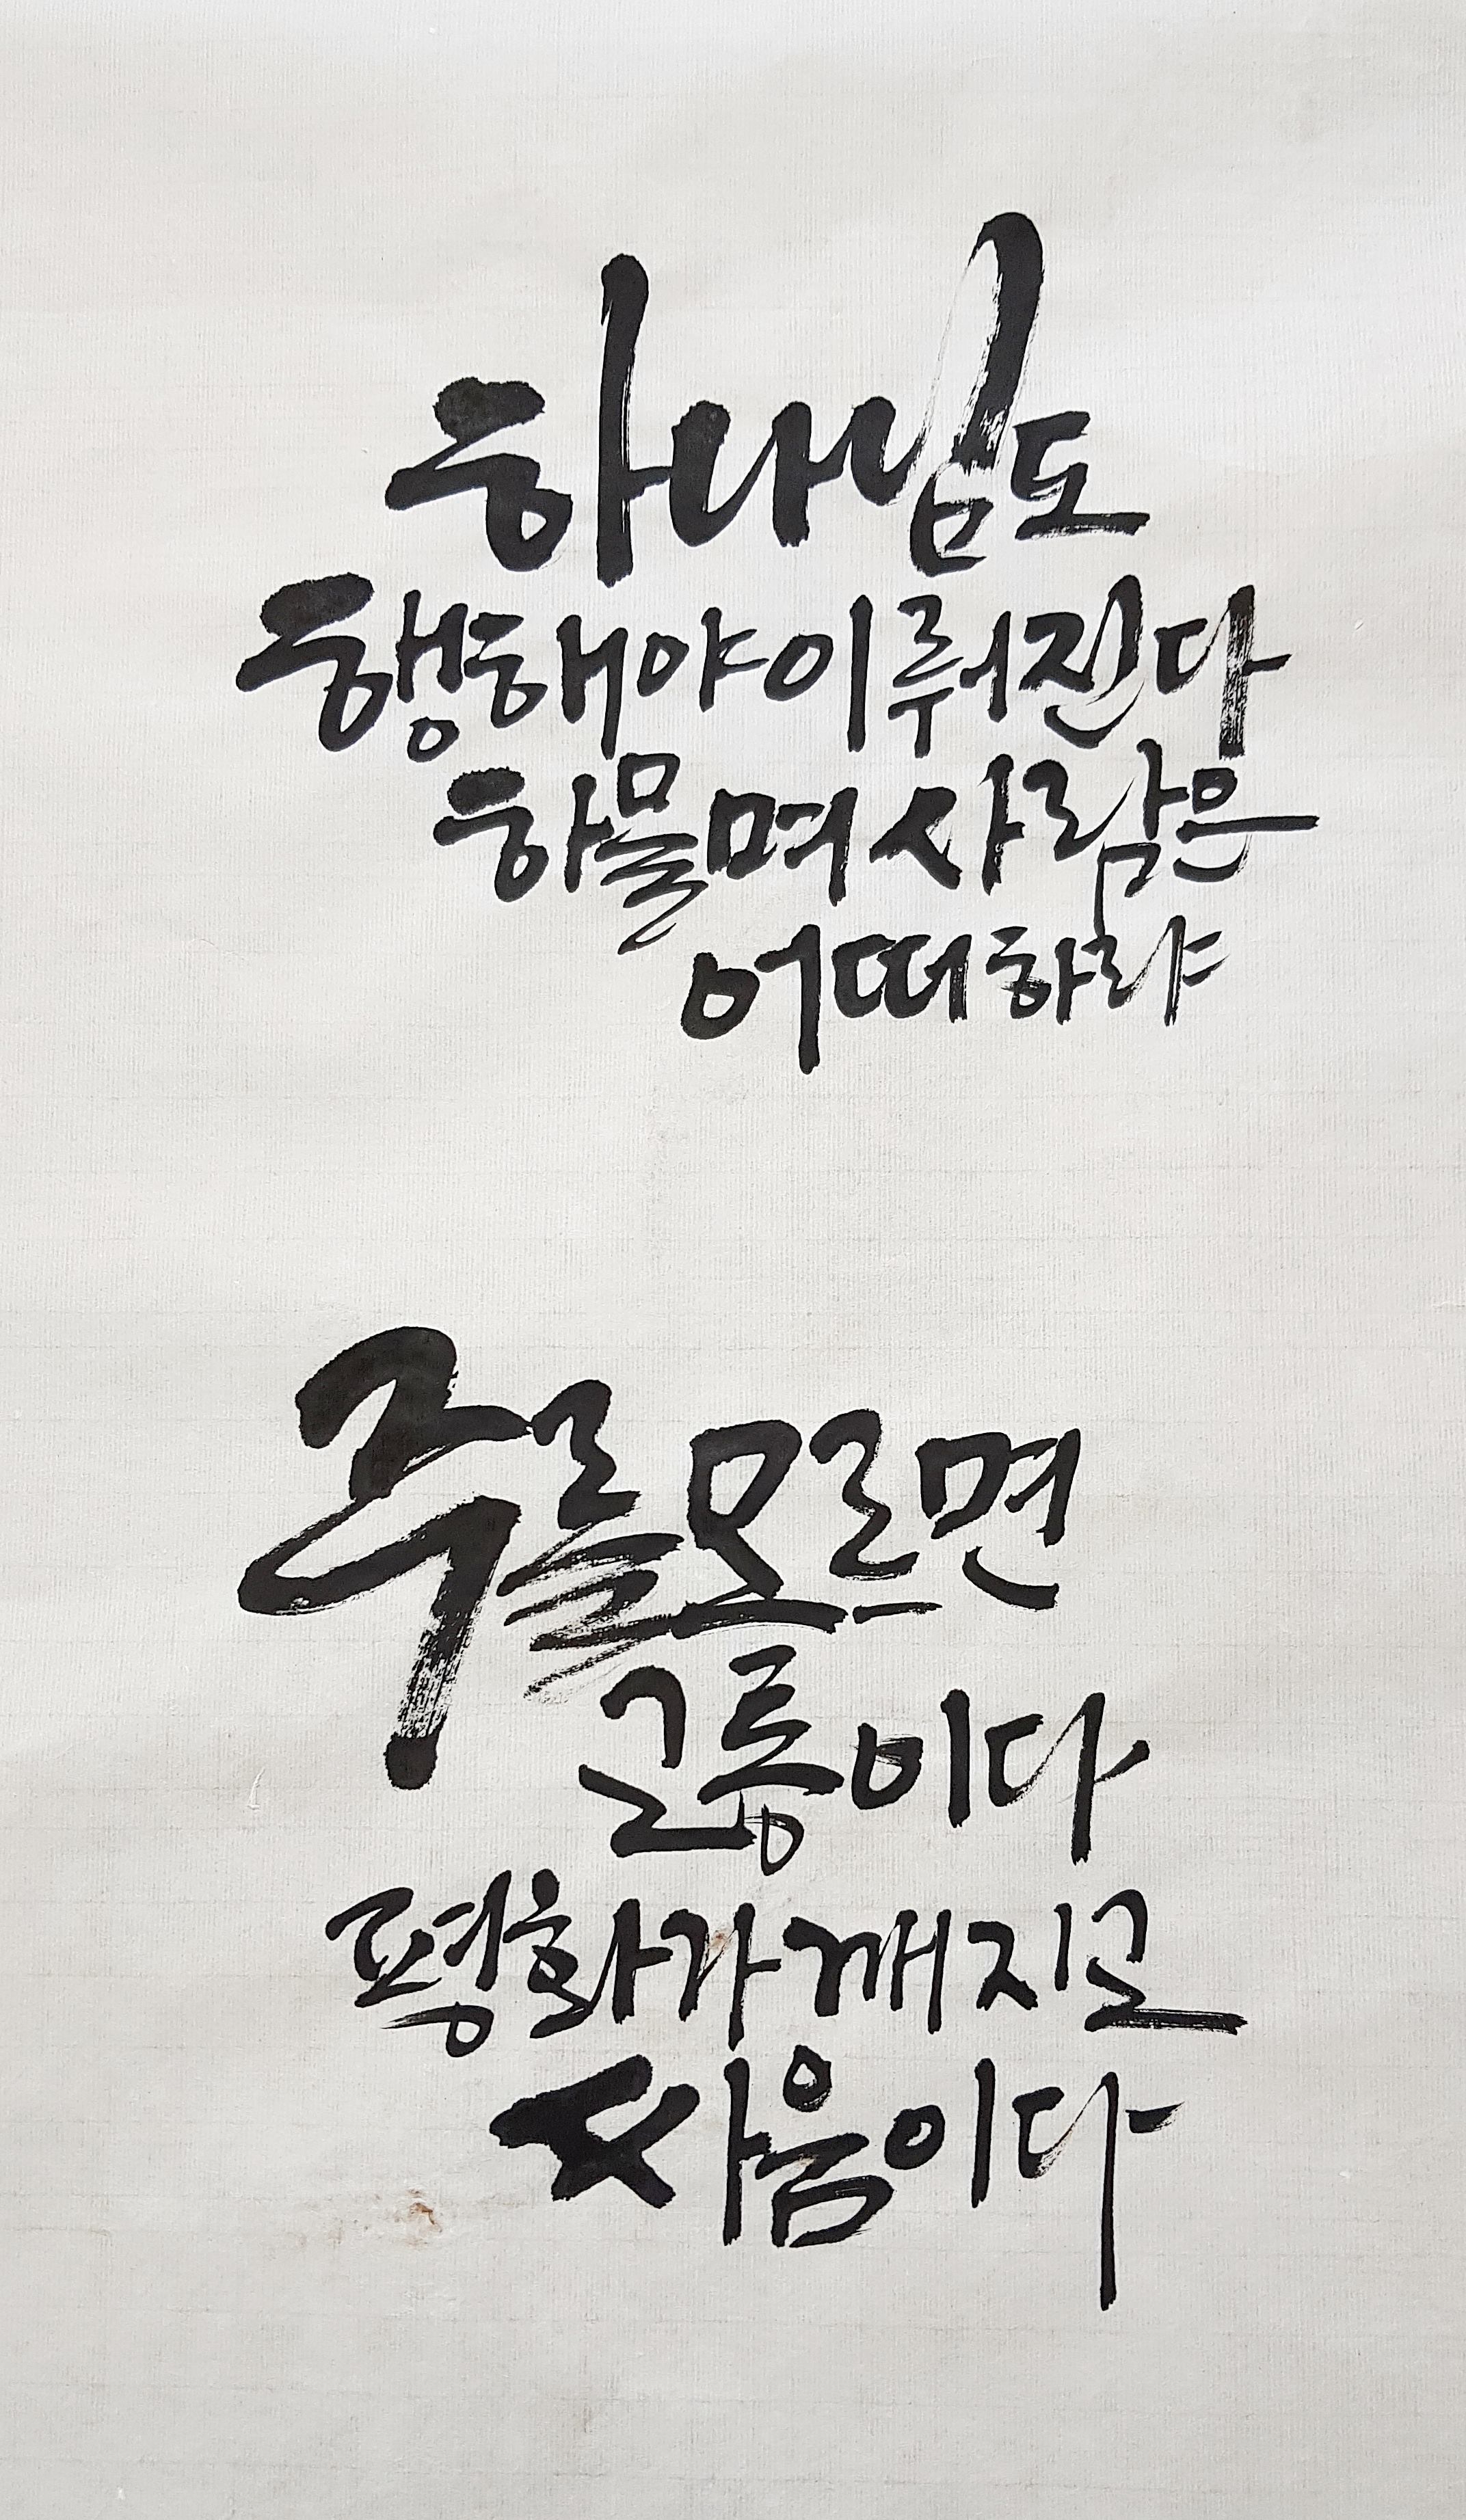 하나님도
행해야 이뤄진다
하물며 사람은
어떠하랴
주를 모르면
고통이다
평화가 깨지고
싸움이다